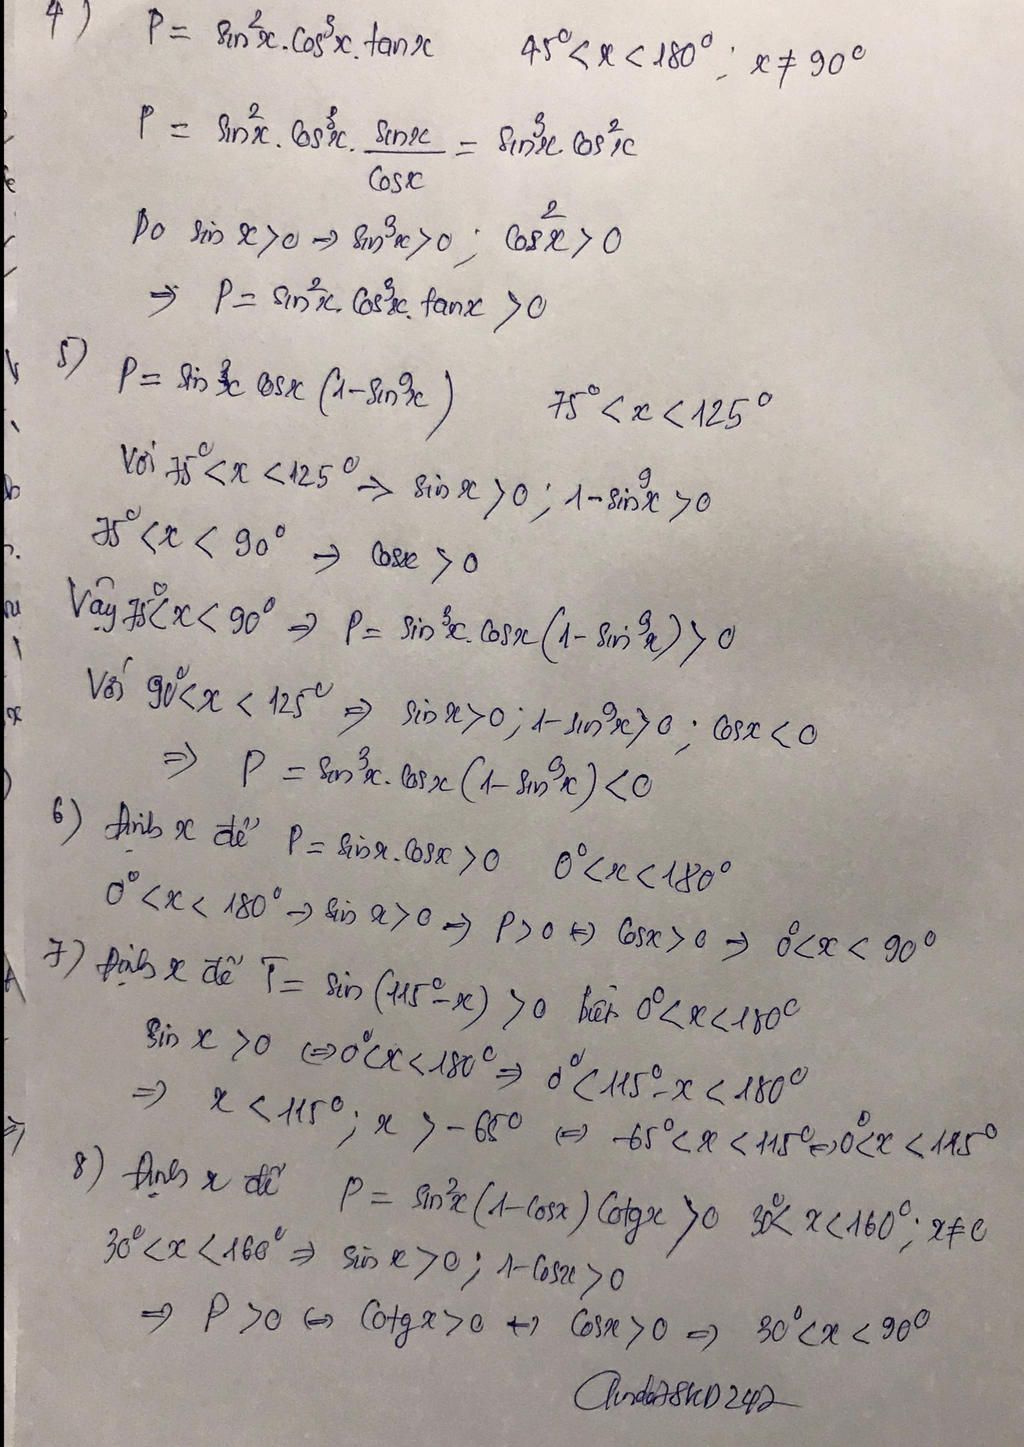 4) P = sin²x.cos³x.tanx 45° < x < 180° ; x ≠ 90°
P = sin²x.cos³x. sinx/cosx = sin³x cos²x
Do sin x > 0 ⇒ sin³x > 0 ; cos²x > 0
⇒ P = sin²x.cos³x.tanx > 0
5) P = sin³x cosx (1-sin⁹x) 75° < x < 125°
Với 75° < x < 125° ⇒ sin x > 0 ; 1-sin⁹x > 0
75° < x < 90° ⇒ cosx > 0
Vậy 75° < x < 90° ⇒ P = sin³x.cosx (1-sin⁹x) > 0
Với 90° < x < 125° ⇒ sin x > 0 ; 1-sin⁹x > 0 ; cosx < 0
⇒ P = sin³x.cosx (1-sin⁹x) < 0
6) Định x để P = sinx.cosx > 0 0° < x < 180°
0° < x < 180° ⇒ sin x > 0 ⇒ P > 0 ⇔ cosx > 0 ⇒ 0° < x < 90°
7) Định x để T = sin (115°-x) > 0 biết 0° < x < 180°
sin x > 0 ⇔ 0° < x < 180° ⇒ 0° < 115°-x < 180°
⇒ x < 115° ; x > -65° ⇔ -65° < x < 115° ⇒ 0° < x < 115°
8) Định x để P = sin²x (1-cosx) cotgx > 0 30° < x < 160° ; x ≠ 0
30° < x < 160° ⇒ sin x > 0 ; 1-cosx > 0
⇒ P > 0 ⇔ cotgx > 0 ⇔ cosx > 0 ⇒ 30° < x < 90°